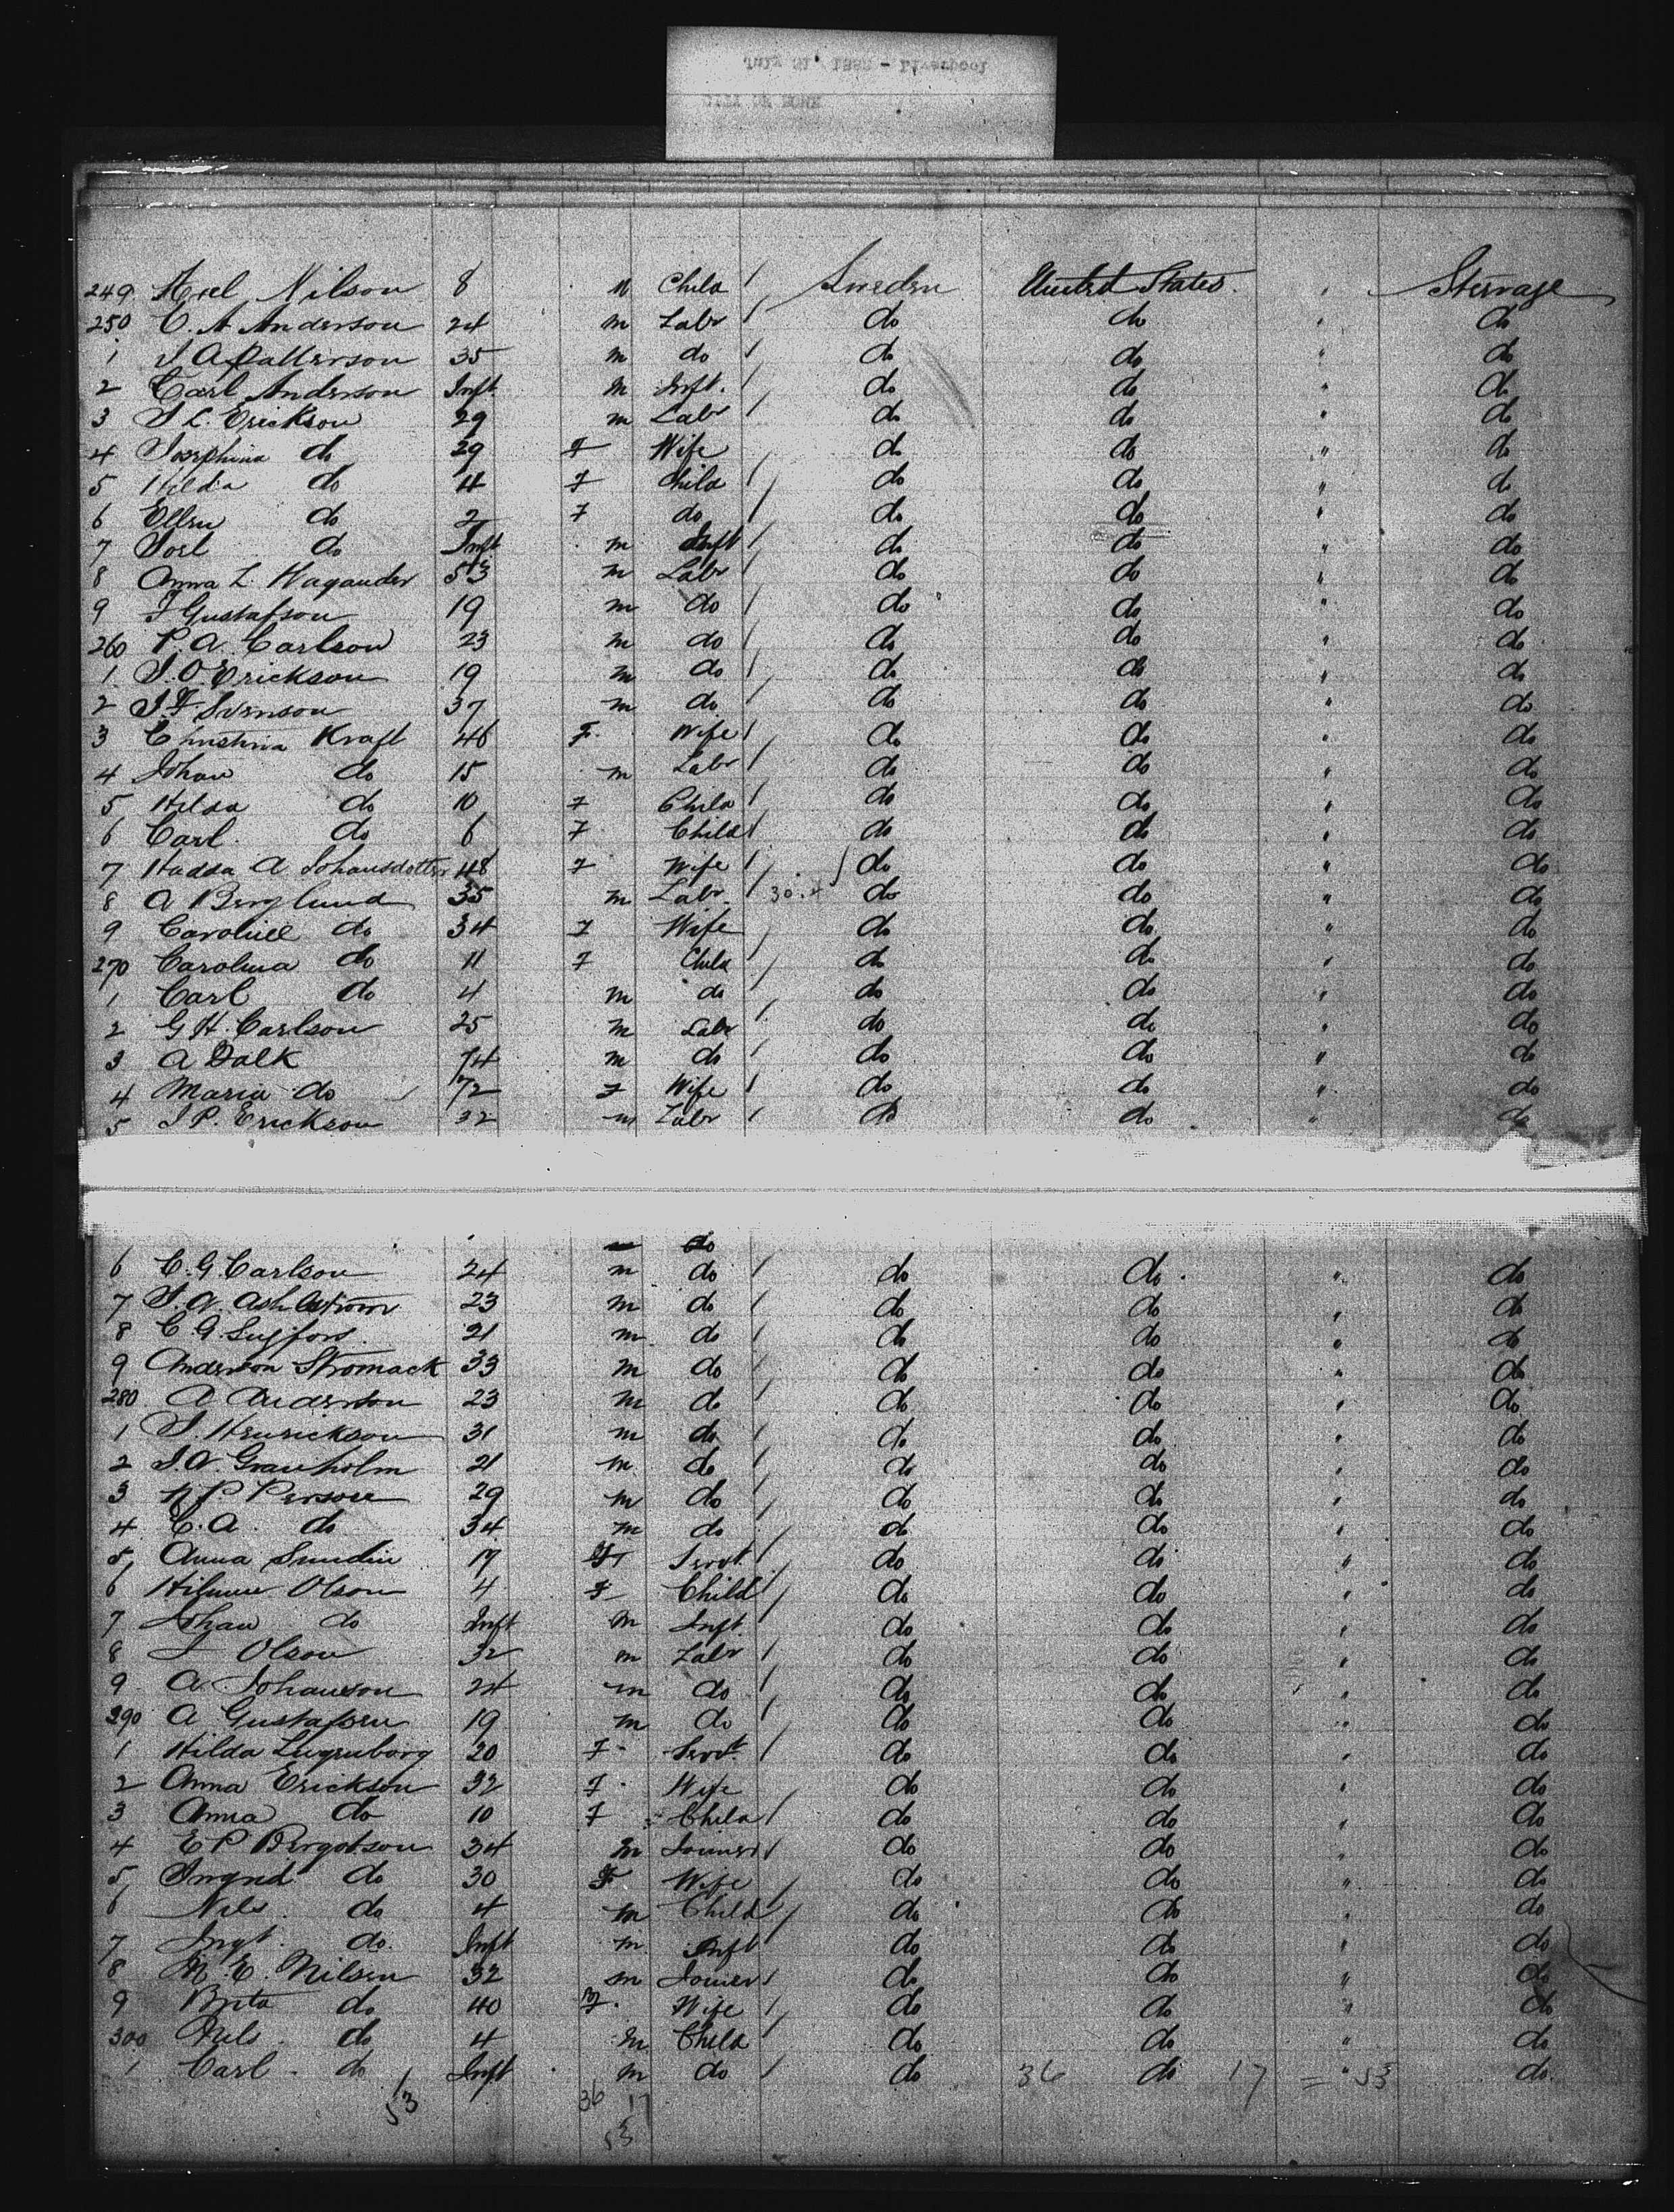 249 Axel Nilson 8 M Child Sweden United States " Steerage
250 C. A Anderson 24 m Labr do do " do
1 J A Patterson 35 m do do do " do
2 Carl Anderson Inft. m Inft. do do " do
3 J L. Erickson 29 m Labr do do " do
4 Josephina do 29 F Wife do do " do
5 Hilda do 4 F Child do do " do
6 Ellen do 2 F do do do " do
7 Joel do Inft m Inft do do " do
8 Anna L. Hagander 53 m Labr do do " do
9 F Gustafson 19 m do do do " do
260 P. A. Carlson 23 m do do do " do
1 J. O. Erickson 19 m do do do " do
2 J. F Svenson 37 m do do do " do
3 Christina Kraft 46 F. Wife do do " do
4 Johan do 15 m Labr do do " do
5 Hilda do 10 F Child do do " do
6 Carl do 6 F Child do do " do
7 Hadda A Johansdotter 48 F Wife do do " do
8 A Berglund 35 m Labr. 30.4 do do " do
9 do 34 F Wife do do " do
270 Carolina do 11 F Child do do " do
1 Carl do 4 m do do do " do
2 G H. Carlson 25 m Labr do do " do
3 A Dalk 74 m do do do " do
4 Maria do 72 F Wife do do " do
5 J P. Erickson 32 m Labr do do " do
do
6 C. G. Carlson 24 m do do do " do
7 J. A. 23 m do do do " do
8 C. A. 21 m do do do " do
9 Anderson Stromack 33 m do do do " do
280 A Anderson 23 m do do do " do
1 J. Henrickson 31 m do do do " do
2 J. A. Granholm 21 m do do do " do
3 N P. Person 29 m do do do " do
4 C. A. do 34 m do do do " do
5 Anna Sundin 17 F Servt. do do " do
6 Olson 4 F Child do do " do
7 Johan do Inft m Inft. do do " do
8 Olson 32 m Labr do do " do
9 A. Johanson 24 m do do do " do
290 A Gustafsen 19 m do do do " do
1 Hilda 20 F Servt. do do " do
2 Anna Erickson 32 F Wife do do " do
3 Anna do 10 F Child do do " do
4 E P Bergotson 34 m Joiner do do " do
5 Ingrid do 30 F Wife do do " do
6 Nils do 4 m Child do do " do
7 Ingt. do. Inft m Inft do do " do
8 N. E. Nilsen 32 m Joiner do do " do
9 Brita do 40 F. Wife do do " do
300 Nils do 4 m Child do do " do
1 Carl do Inft m do do 36 do 17 = " 53 do.
53 36 17
53